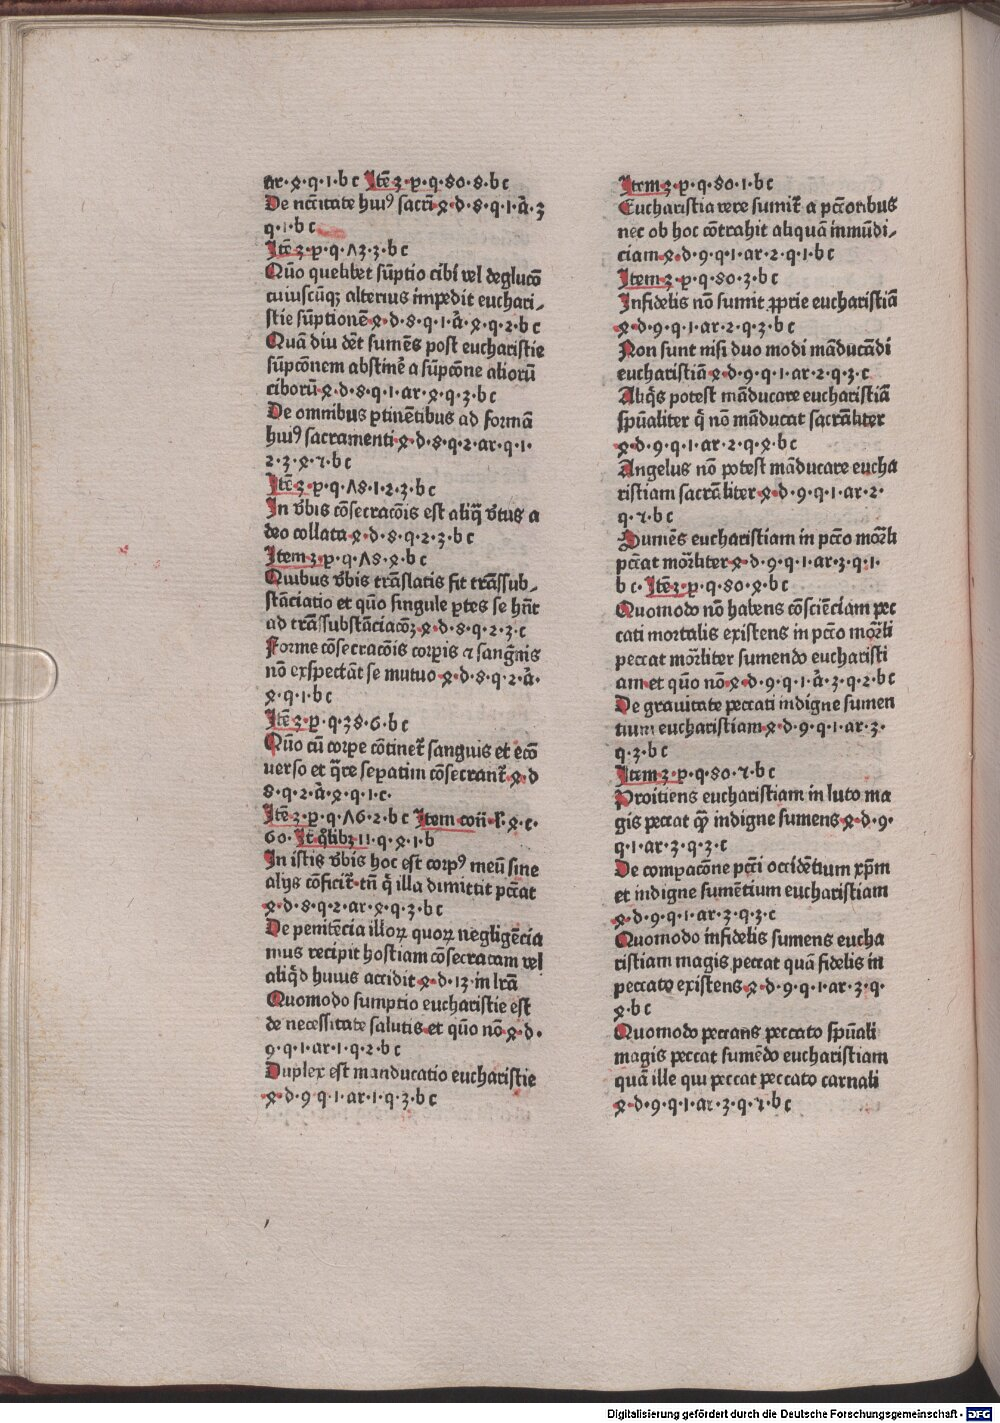 ar·ꝝ·q·1·b c Itē 3·p̲·q·80·8·b c
De nc̄citate huiꝰ sacr̄i ꝝ·d·8·q·1·a̓·3
q·1·b c
Itē 3·p̲·q·Λ3·3·b c
Quō quelibet sūptio cibi vel deglucō
cuiuscūqꝫ alterius impedit euchari⸗
stie sūptionē ꝝ·d·8·q·1·a̓·ꝝ·q·2·b c
Quā diu dēt sumēs post eucharistie
sūpcōnem abstinē a sūpcōne aliorū
ciborū ꝝ·d·8·q·1·ar·ꝝ·q·3·b c
De omnibus ꝑtinētibus ad formā
huiꝰ sacramenti ꝝ·d·8·q·2·ar·q·1·
2·3·ꝝ·ꝛ·b c
Itē 3·p̲·q·Λ8·1·2·3·b c
In v̓bis cōsecracōis est aliq̄ v̓tus a
deo collata ꝝ·d·8·q·2·3·b c
Item 3·p̲·q·Λ8·ꝝ·b c
Quibus v̓bis trāslatis fit trāssub⸗
stāciatio et quō singule ꝑtes se hn̄t
ad trāssubstāciacōꝫ ꝝ·d·8·q·2·3·c
Forme cōsecracōis corꝑis ⁊ sanḡnis
nō exspectāt se mutuo ꝝ·d·8·q·2·a̓·
ꝝ·q·1·b c
Itē 3·p̲·q·38·6·b c
Quō cū corꝑe cōtinet̓ sanguis et ecō
uerso et q̄re seꝑatim cōsecrant̓ ꝝ·d
8·q·2·a̓·ꝝ·q·1·c·
Itē 3·p̲·q·Λ6·2·b c Item con̄·l̓·ꝝ·c·
60· It̄ q̄libꝫ 11·q·ꝝ·1·b
In istis v̓bis hoc est corpꝰ meū sine
alijs cōficit̓·tn̄ q̄ illa dimittit pc̄cat
ꝝ·d·8·q·2·ar·ꝝ·q·3·b c
De penitēcia illoꝝ quoꝝ negligēcia
mus recipit hostiam cōsecratam vel
aliq̄d huius accidit ꝝ·d·13·in lr̄a
Quomodo sumptio eucharistie est
de necessitate salutis et quō nō ꝝ·d·
9·q·1·ar·1·q·2·b c
Duplex est manducatio eucharistie
ꝝ·d·9 q·1·ar·1·q·3·b c
Item 3·p̲·q·80·1·b c
Eucharistia vere sumit̓ a pc̄coribus
nec ob hoc cōtrahit aliquā inmūdi⸗
ciam ꝝ·d·9·q·1·ar·2·q·1·b c
Item 3·p̲·q·80·3·b c
Infidelis nō sumit ꝓprie eucharistiā
ꝝ·d·9·q·1·ar·2·q·3·b c
Non sunt nisi duo modi māducādi
eucharistiā ꝝ·d·9·q·1·ar·2·q·3·c
Aliq̄s potest māducare eucharistiā
spūaliter q̄ nō māducat sacrāliter
ꝝ·d·9·q·1·ar·2·q·ꝝ·b c
Angelus nō potest māducare eucha
ristiam sacrāliter ꝝ·d·9·q·1·ar·2·
q·ꝛ·b c
Sumēs eucharistiam in pc̄co mōrli
pc̄cat mōrliter ꝝ·d·9·q·1·ar·3·q·1·
b c· Itē 3·p̲·q·80·ꝝ·b c
Quomodo nō habens cōsciēciam pec
cati mortalis existens in pc̄co mōrli
peccat mōrliter sumendo eucharisti
am et quō nō ꝝ·d·9·q·1·a̓·3·q·2·b c
De grauitate peccati indigne sumen
tium eucharistiam ꝝ·d·9·q·1·ar·3·
q·3·b c
Item 3·p̲·q·80·ꝛ·b c
Proitiens eucharistiam in luto ma
gis peccat qꝫ̄ indigne sumens ꝝ·d·9·
q·1·ar·3·q·3·c
De compacōne pc̄ti occidētium xp̄m
et indigne sumētium eucharistiam
ꝝ·d·9·q·1·ar·3·q·3·c
Quomodo infidelis sumens eucha
ristiam magis peccat quā fidelis in
peccato existens ꝝ·d·9·q·1·ar·3·q·
ꝝ·b c
Quomodo peccans peccato spūali
magis peccat sumēdo eucharistiam
quā ille qui peccat peccato carnali
ꝝ·d·9·q·1·ar·3·q·ꝛ·b c
Digitalisierung gefördert durch die Deutsche Forschungsgemeinschaft · DFG